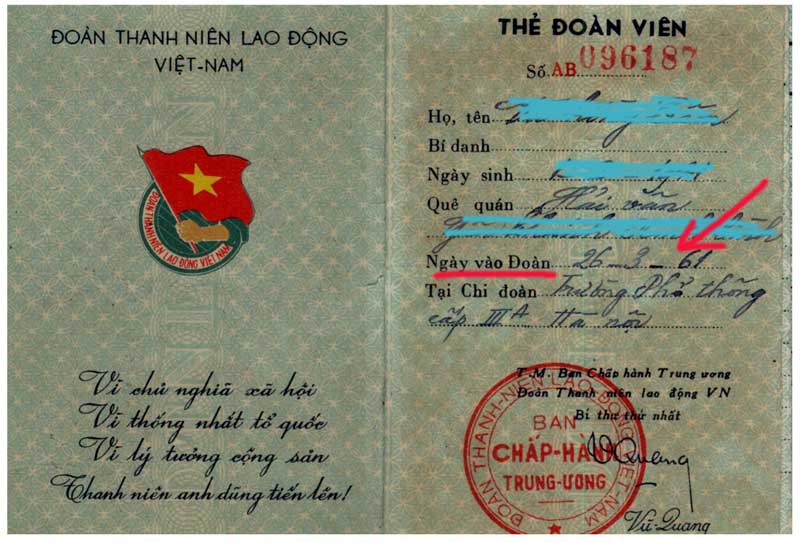 ĐOÀN THANH NIÊN LAO ĐỘNG
VIỆT-NAM
ĐOÀN THANH NIÊN LAO ĐỘNG VIỆT NAM
Vì chủ nghĩa xã hội
Vì thống nhất tổ quốc
Vì lý tưởng cộng sản
Thanh niên anh dũng tiến lên!
THẺ ĐOÀN VIÊN
Số AB 096187
Họ, tên
Bí danh
Ngày sinh
Quê quán Hải vân
Ngày vào Đoàn 26-3-61
Tại Chi đoàn Trường Phổ thông
cấp III A Hà nội
T.M. Ban Chấp hành Trung ương
Đoàn Thanh niên lao động VN
Bí thư thứ nhất
ĐOÀN THANH-NIÊN LAO ĐỘNG VIỆT-NAM
BAN
CHẤP-HÀNH
TRUNG-ƯƠNG
VQuang
Vũ-Quang